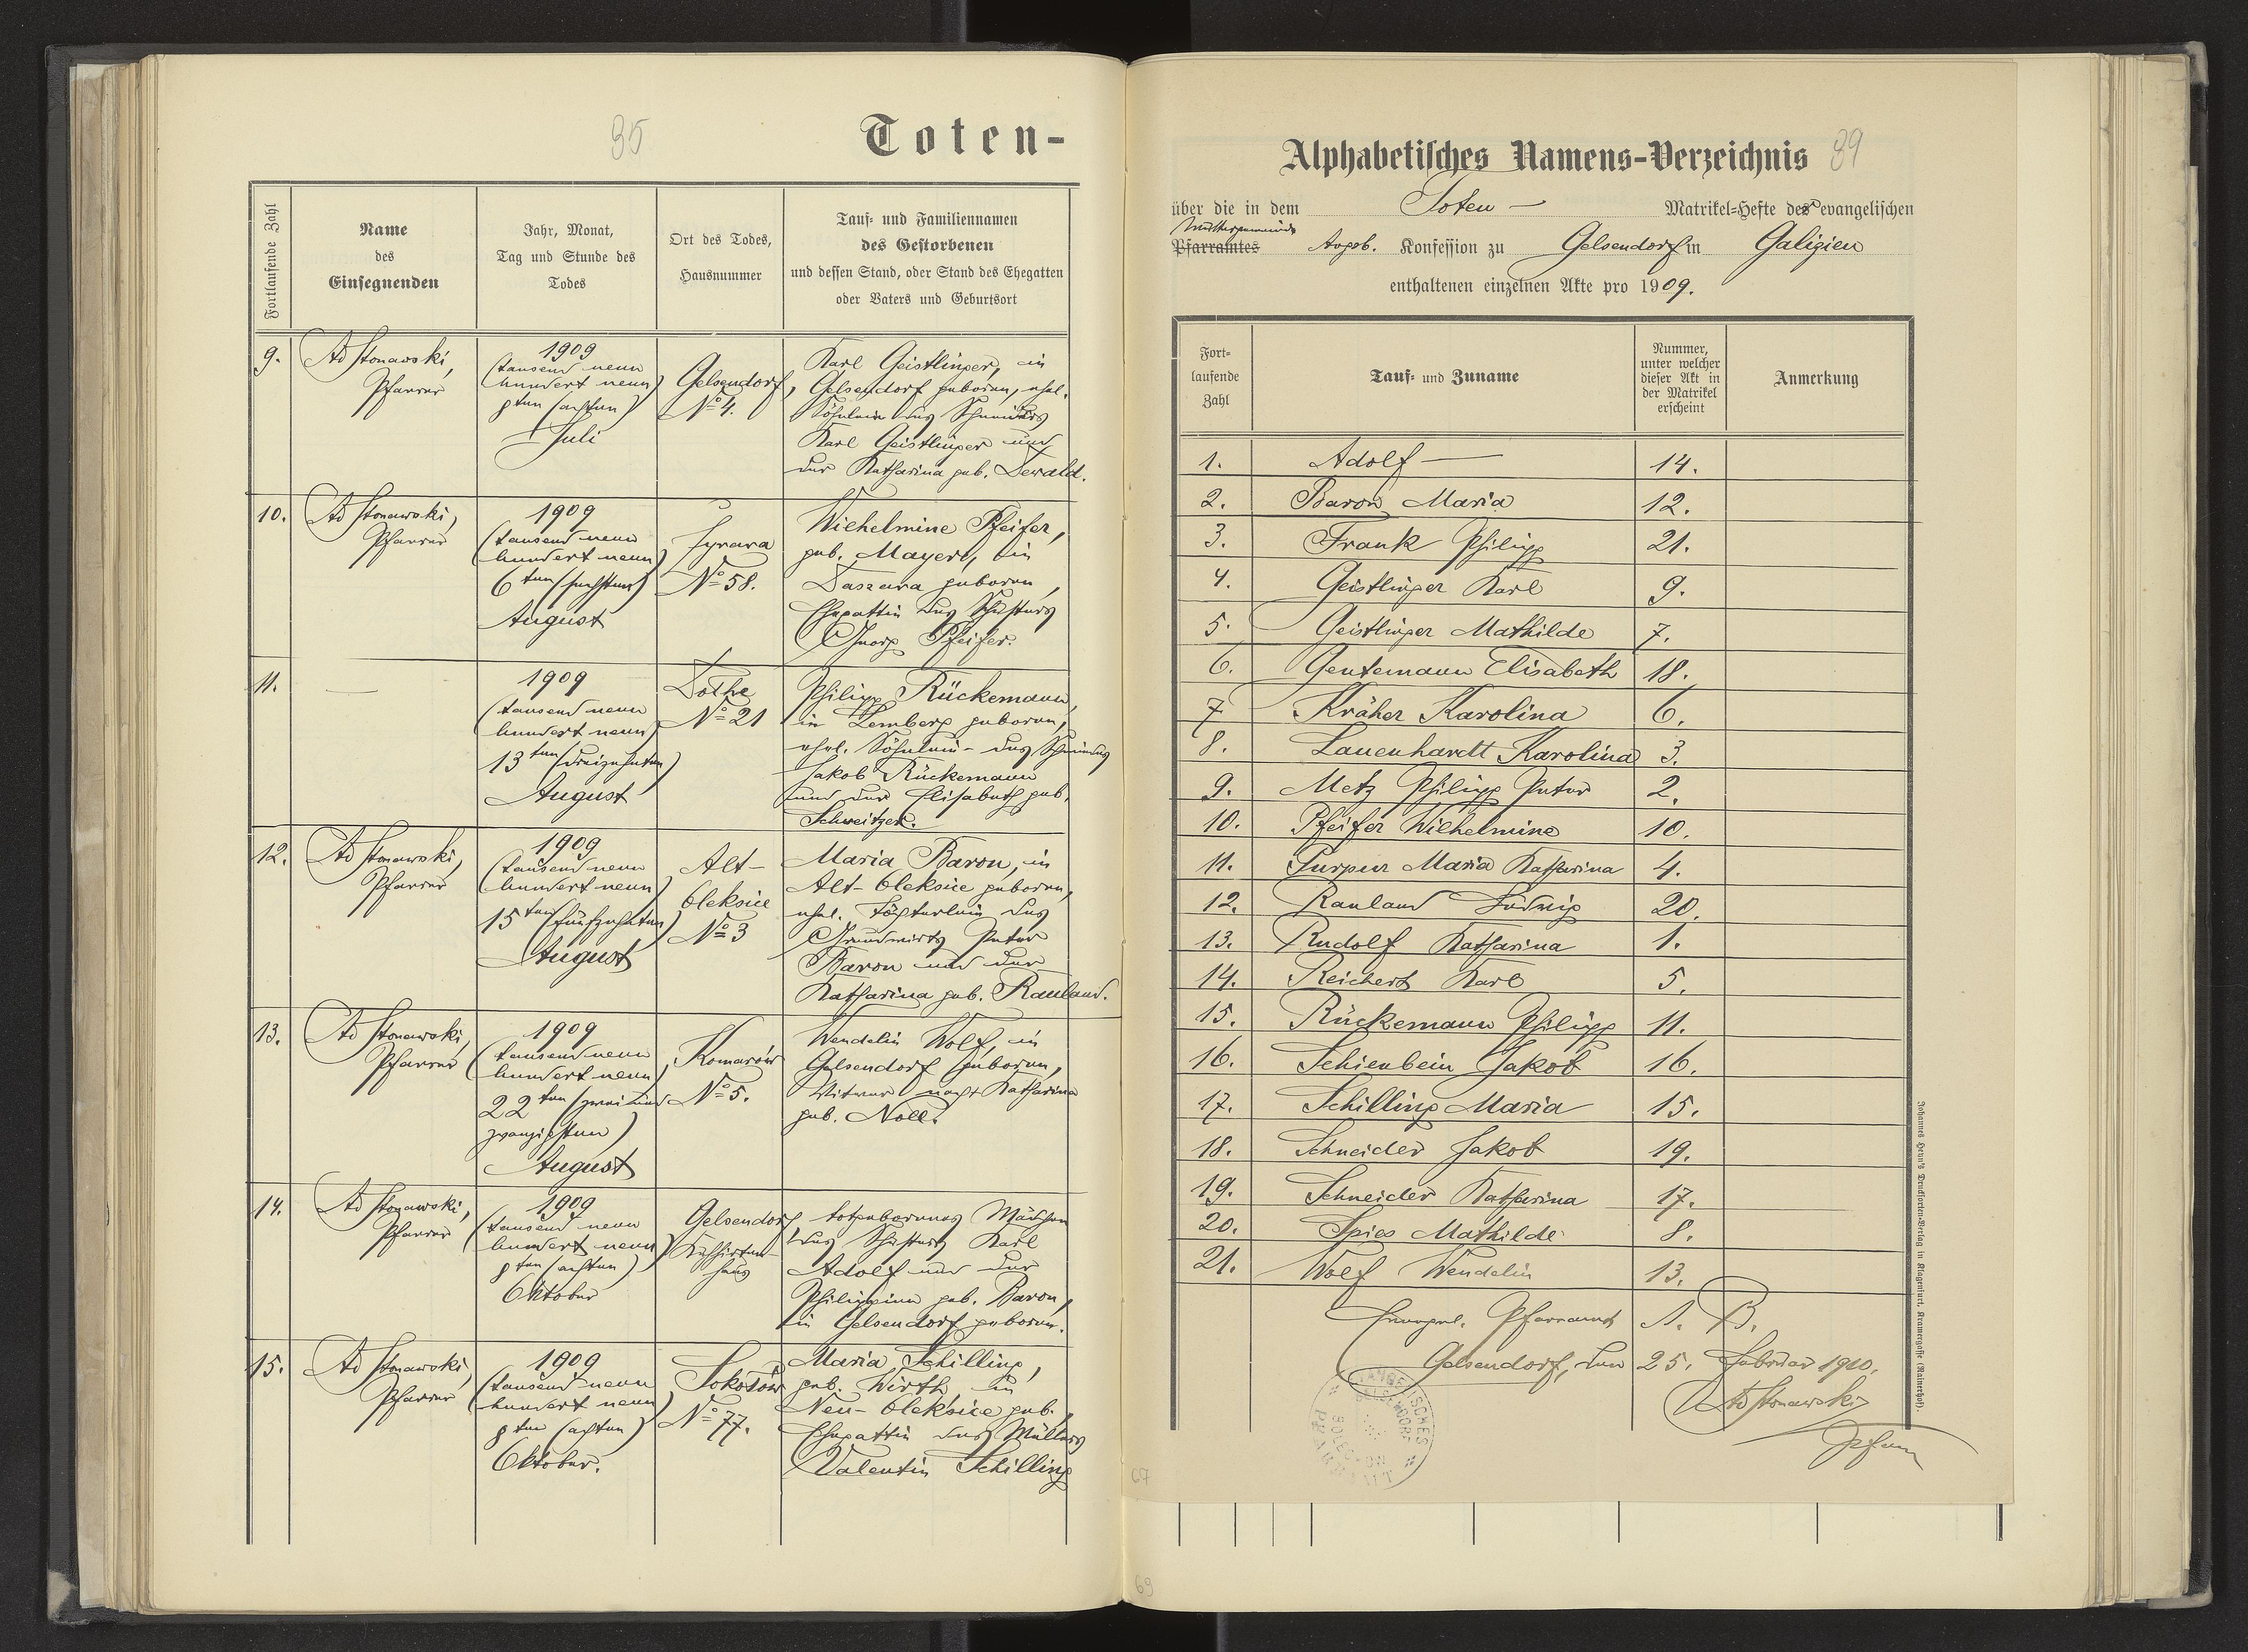 35
Toten-
Fortlaufende Zahl
Name
des
Einsegnenden
Jahr, Monat,
Tag und Stunde des
Todes
Ort des Todes,
Hausnummer
Tauf- und Familiennamen
des Gestorbenen
und dessen Stand, oder Stand des Ehegatten
oder Vaters und Geburtsort
9.
Ad Stonawski,
Pfarrer
1909
(tausend neun
hundert neun)
8ten (achten)
Juli
Gelsendorf,
No 4.
Karl Geistlinger, in
Gelsendorf geboren, ehel.
Söhnlein des Schneiders
Karl Geistlinger und
der Katharina geb. Dewald.
10.
Ad Stonawski,
Pfarrer
1909
(tausend neun
hundert neun)
6ten (sechsten)
August
No 58.
Wilhelmine Pfeifer,
geb. Mayer, in
Daszava geboren,
Ehegattin des Schusters
Georg Pfeifer.
11.
1909
(tausend neun
hundert neun)
13ten (dreizehnten)
August
Dolhe
No 21
Philipp Rückemann,
in Lemberg geboren,
ehel. Söhnlein des Schmiedes
Jakob Rückemann
und der Elisabeth geb.
Schweitzer.
12.
Ad Stonawski,
Pfarrer
1909
(tausend neun
hundert neun)
15ten (fünfzehnten)
August
Alt-
Oleksice
No 3
Maria Baron, in
Alt-Oleksice geboren,
ehel. Töchterlein des
Grundwirts Peter
Baron und der
Katharina geb. Rauland.
13.
Ad Stonawski,
Pfarrer
1909
(tausend neun
hundert neun)
22ten (zweiund
zwanzigsten)
August
Komarów
No 5.
Wendelin Wolf, in
Gelsendorf geboren,
Witwer nach Katharina
geb. Noll.
14.
Ad Stonawski,
Pfarrer
1909
(tausend neun
hundert neun)
8ten (achten)
Oktober
Gelsendorf,
Kuhhirten-
haus
totgeborenes Mädchen
des Schusters Karl
Adolf und der
Philippine geb. Baron,
in Gelsendorf geboren.
15.
Ad Stonawski,
Pfarrer
1909
(tausend neun
hundert neun)
8ten (achten)
Oktober.
Sokolów
No 77.
Maria Schilling,
geb. Wirth, in
Neu-Oleksice geb.,
Ehegattin des Müllers
Valentin Schilling
Alphabetisches Namens-Verzeichnis 39
über die in dem Toten- Matrikel-Hefte der evangelischen
Muttergemeinde
Pfarramtes Augsb. Konfession zu Gelsendorf in Galizien
enthaltenen einzelnen Akte pro 1909.
Fort-
laufende
Zahl
Tauf- und Zuname
Nummer,
unter welcher
dieser Akt in
der Matrikel
erscheint
Anmerkung
1. Adolf — 14.
2. Baron Maria 12.
3. Frank Philipp 21.
4. Geistlinger Karl 9.
5. Geistlinger Mathilde 7.
6. Gentemann Elisabeth 18.
7 Kräher Karolina 6.
8. Lauenhardt Karolina 3.
9. Metz Philipp Peter 2.
10. Pfeifer Wilhelmine 10.
11. Maria Katharina 4.
12. Rauland Ludwig 20.
13. Rudolf Katharina 1.
14. Reichert Karl 5.
15. Rückemann Philipp 11.
16. Schienbein Jakob 16.
17. Schilling Maria 15.
18. Schneider Jakob 19.
19. Schneider Katharina 17.
20. Spies Mathilde 8.
21. Wolf Wendelin 13.
Evangel. Pfarramt A. B.
Gelsendorf, den 25. Februar 1910.
Ad Stonawski
Pfarrer
Johannes Heyn's Drucksorten-Verlag in Klagenfurt, Kramergasse (Rainerhof).
67
69